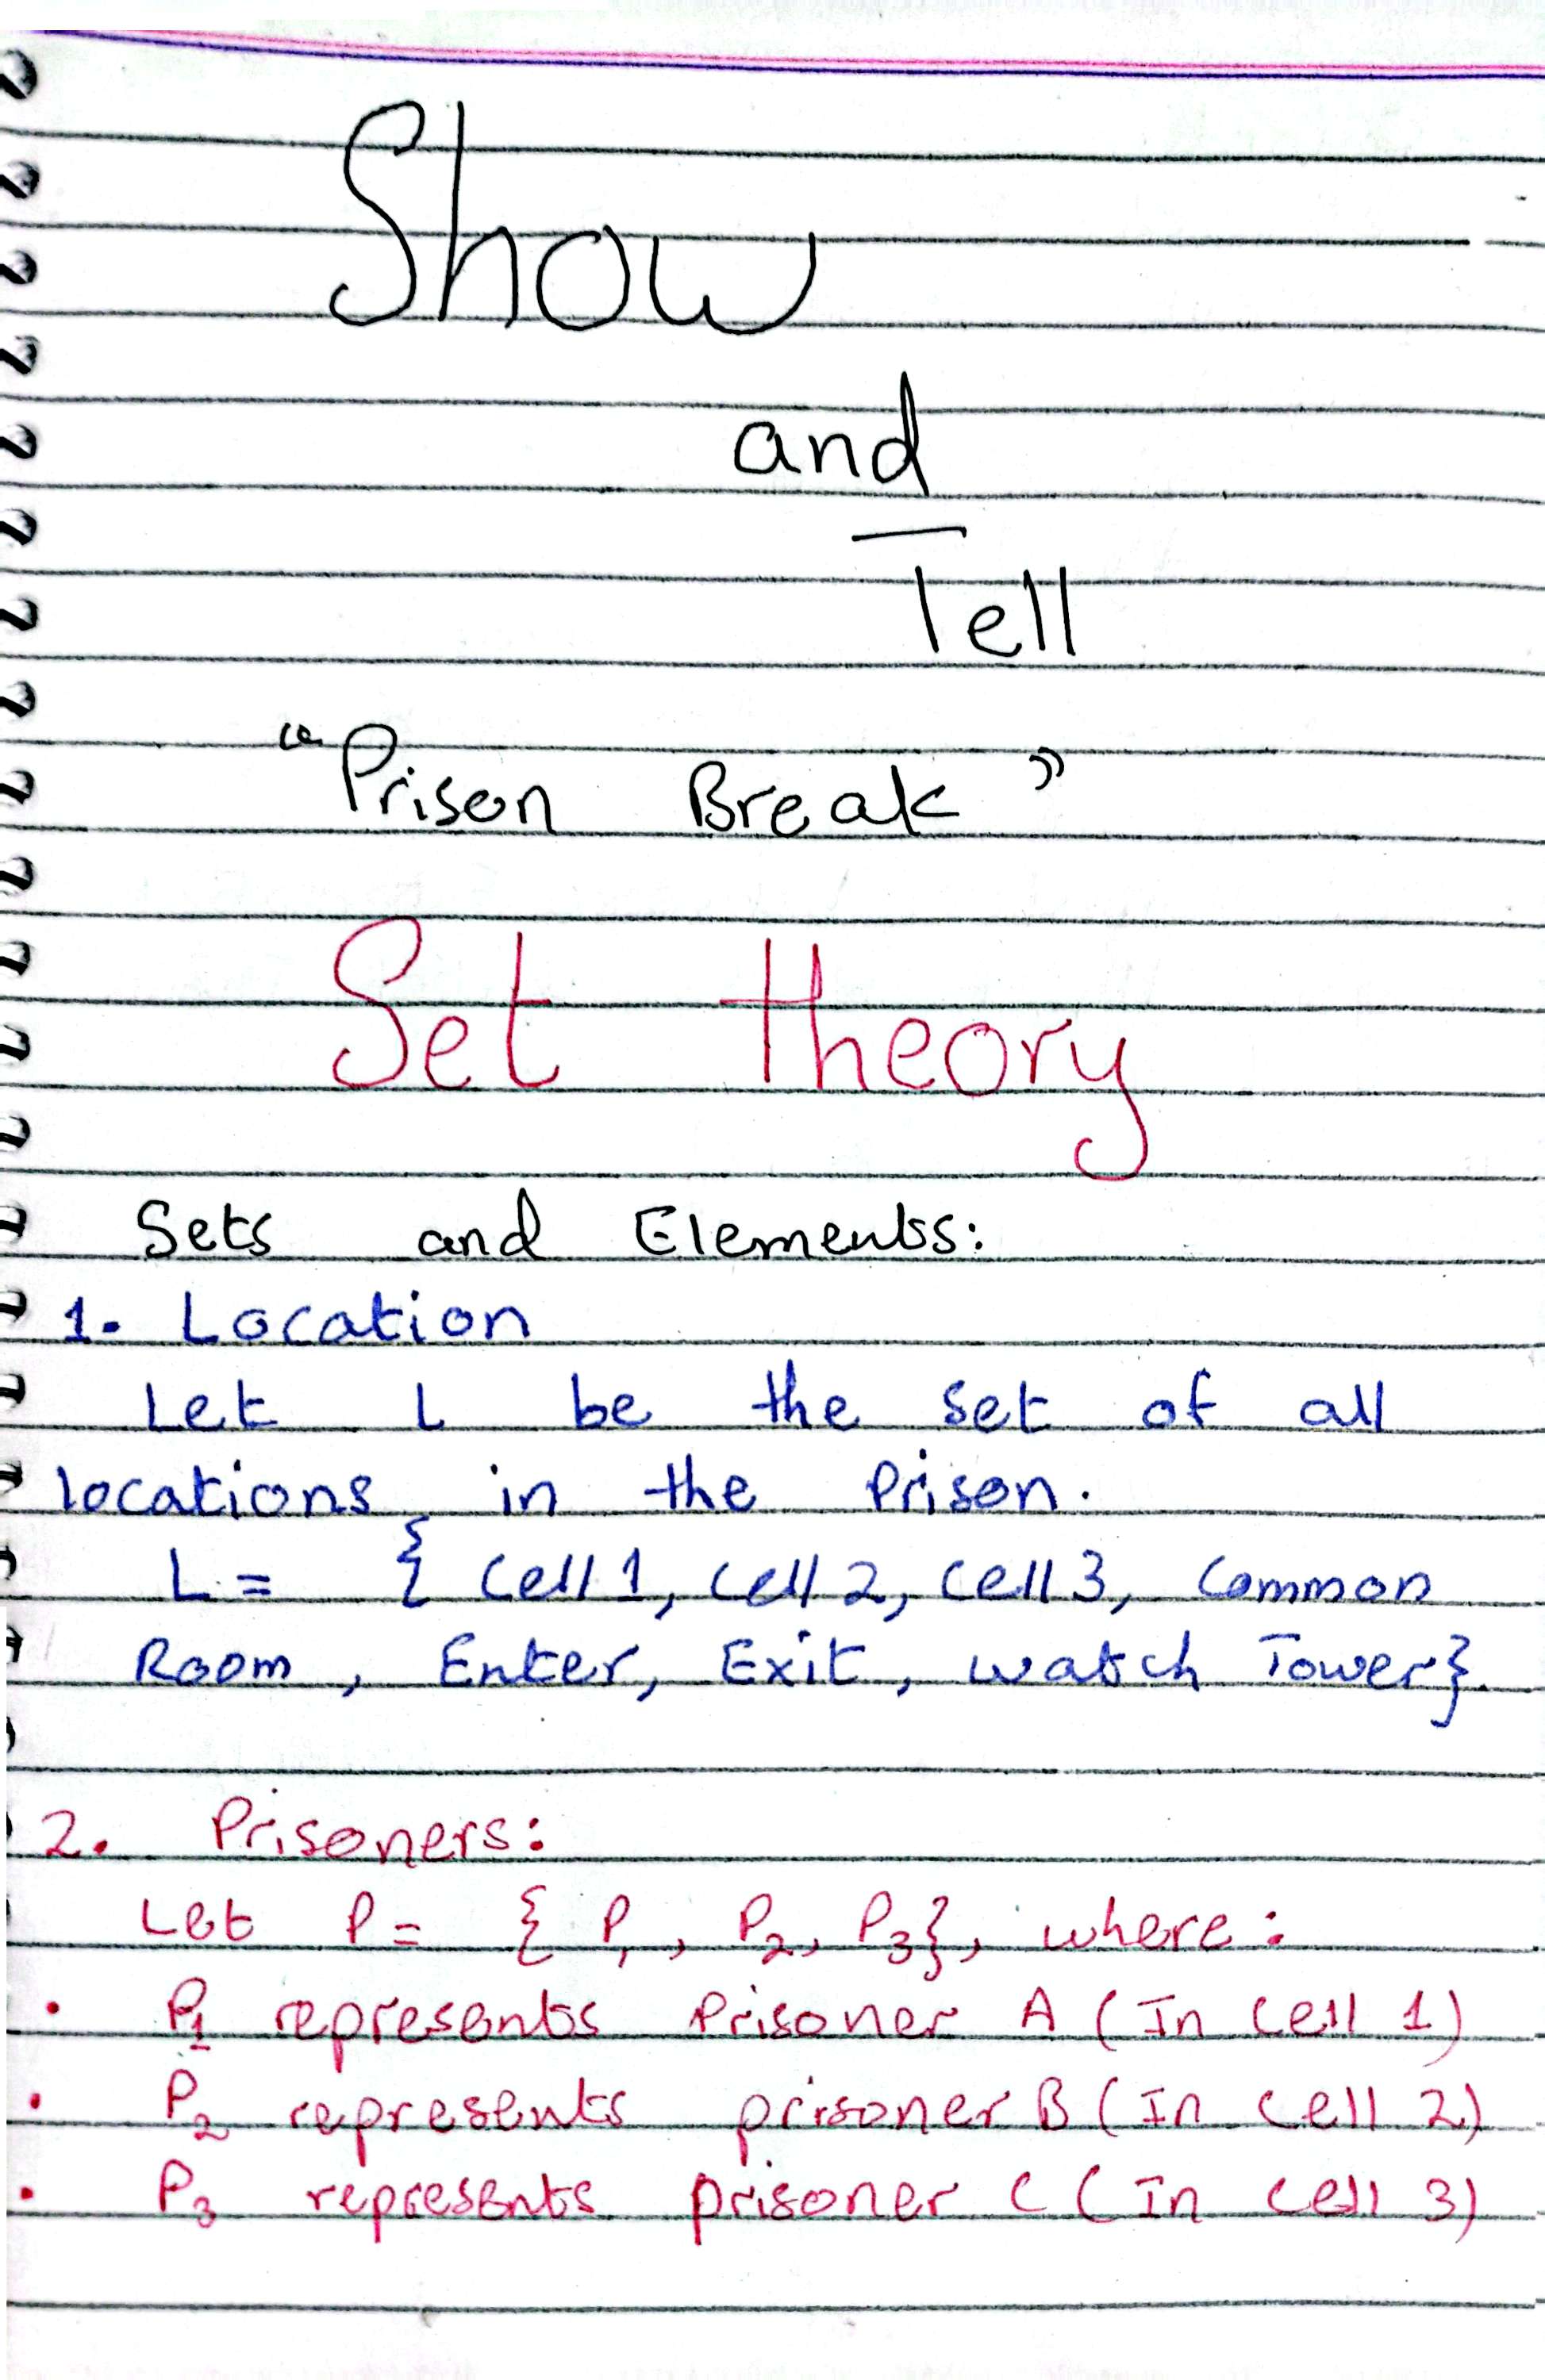 Show
and
Tell
"Prison Break"
Set theory
Sets and Elements:
1. Location
Let L be the set of all
locations in the prison.
L = { Cell 1, Cell 2, Cell 3, Common
Room, Enter, Exit, watch Tower}.
2. Prisoners:
Let P = { P₁, P₂, P₃}, where:
• P₁ represents Prisoner A (In Cell 1)
• P₂ represents prisoner B (In cell 2)
• P₃ represents prisoner C (In cell 3)